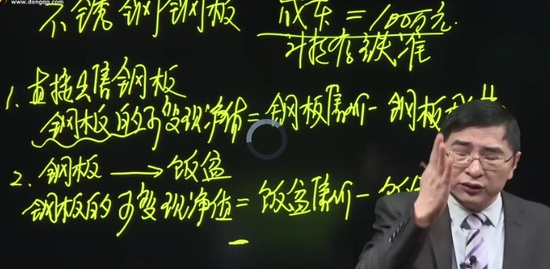 www.dongao.com
不锈钢钢板 成本=100万元.
计提存跌准
1. 直接出售钢板
钢板的可变现净值=钢板售价-钢板
2. 钢板→饭盆
钢板的可变现净值=饭盆售价-